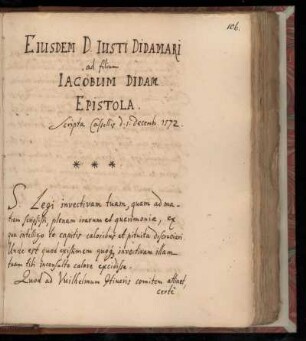 106.
EIUSDEM D. IUSTI DIDAMARI
ad filium
IACOBUM DIDAM
EPISTOLA.
Scripta Casellis d. 1. decemb 1572.
* * *
S. Legi invectivam tuam, quam ad ma-
tam scripsisti, plenam irarum et querimoniæ, ex
qua intelligo te capitis caloribus et pituita discruciari
Unde est quod existimem quoq invectivam illam
tuam tibi inconsulto calore excidisse.
Quod ad Wilhelmum Itineris comitem attinet,
certe